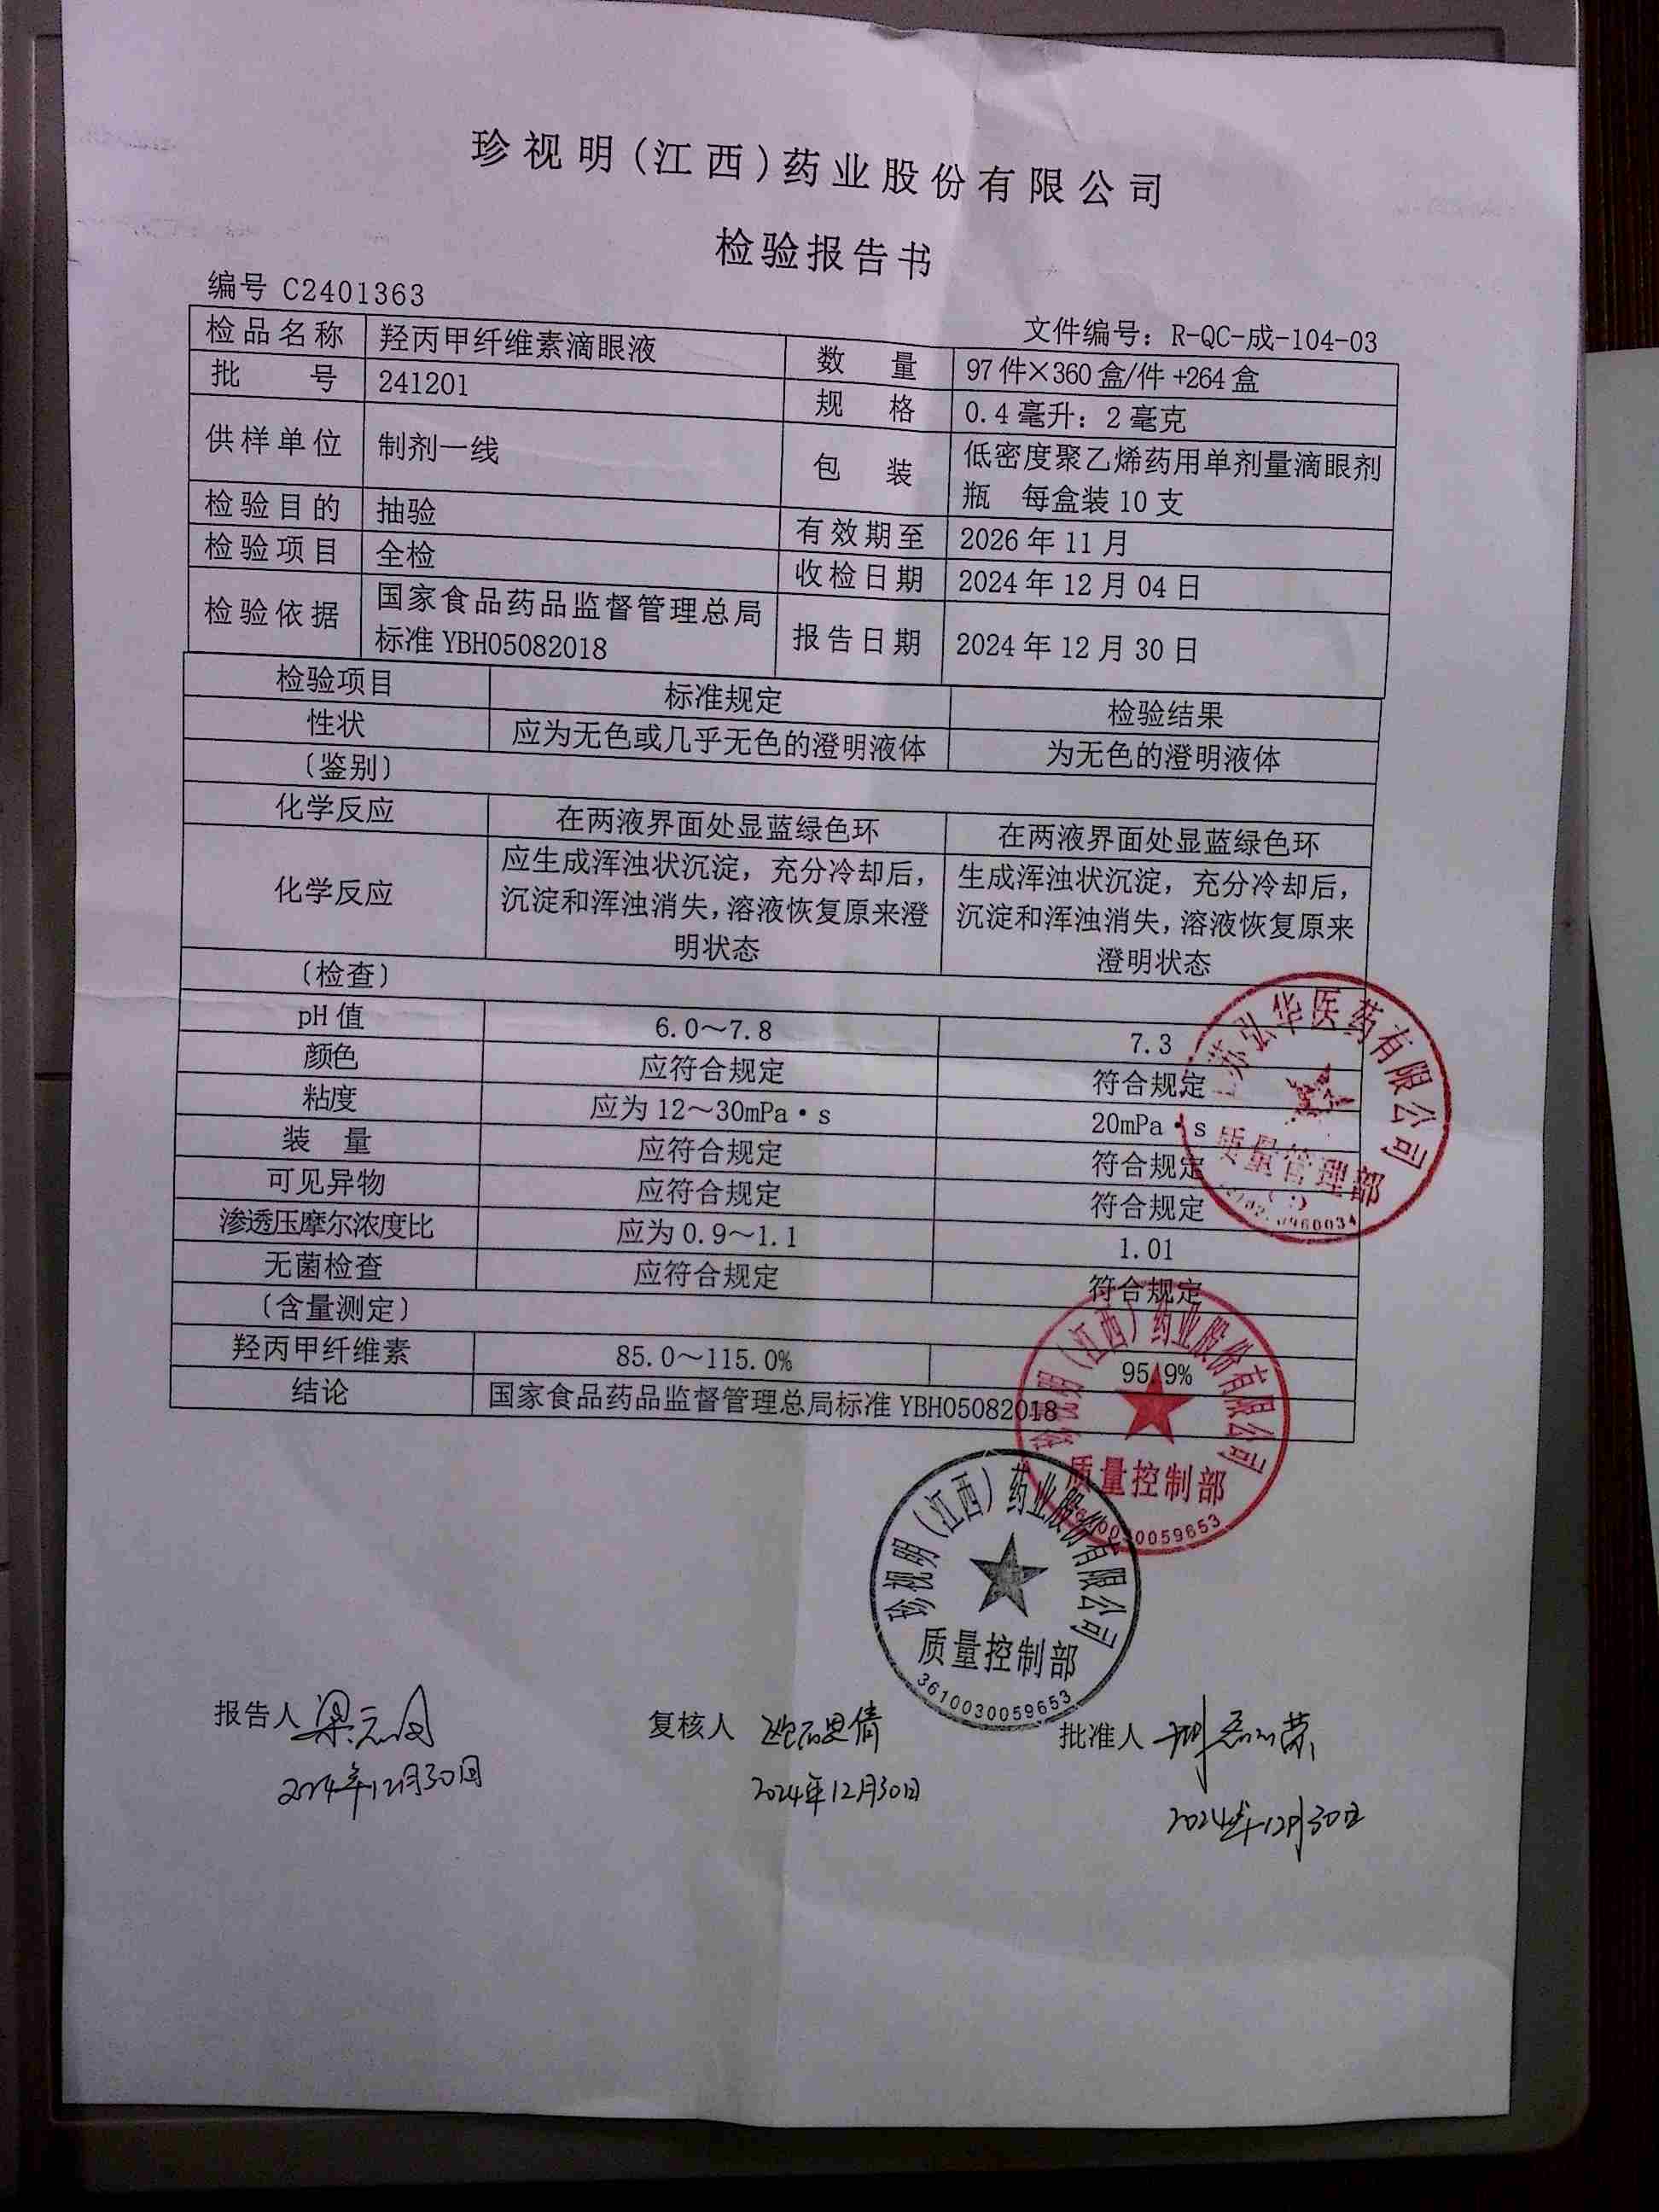 珍视明(江西)药业股份有限公司
检验报告书
编号 C2401363
文件编号：R-QC-成-104-03
检品名称 羟丙甲纤维素滴眼液 数 量 97件×360盒/件+264盒
批 号 241201 规 格 0.4毫升：2毫克
供样单位 制剂一线 包 装 低密度聚乙烯药用单剂量滴眼剂
瓶 每盒装10支
检验目的 抽验 有效期至 2026年11月
检验项目 全检 收检日期 2024年12月04日
检验依据 国家食品药品监督管理总局
标准YBH05082018 报告日期 2024年12月30日
检验项目 标准规定 检验结果
性状 应为无色或几乎无色的澄明液体 为无色的澄明液体
〔鉴别〕
化学反应 在两液界面处显蓝绿色环 在两液界面处显蓝绿色环
化学反应 应生成浑浊状沉淀，充分冷却后， 生成浑浊状沉淀，充分冷却后，
沉淀和浑浊消失，溶液恢复原来澄 沉淀和浑浊消失，溶液恢复原来
明状态 澄明状态
〔检查〕
pH值 6.0～7.8 7.3
颜色 应符合规定 符合规定
粘度 应为12～30mPa·s 20mPa·s
装 量 应符合规定 符合规定
可见异物 应符合规定 符合规定
渗透压摩尔浓度比 应为0.9～1.1 1.01
无菌检查 应符合规定 符合规定
〔含量测定〕
羟丙甲纤维素 85.0～115.0% 95.9%
结论 国家食品药品监督管理总局标准YBH05082018
苏弘华医药有限公司
质量管理部
珍视明（江西）药业股份有限公司
质量控制部
珍视明（江西）药业股份有限公司
质量控制部
3610030059653
报告人 复核人 批准人
2024年12月30日 2024年12月30日 2024年12月30日